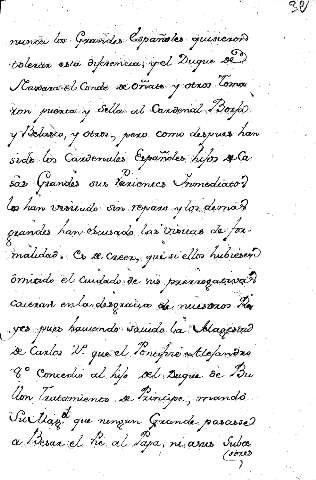 32
nunca los Grandes Españoles quisieron
tolerar esta diferencia, y el Duque de
Navara el Conde de Oñate y otros toma
ron puerta y silla al Cardenal Borja
y Velasco, y otros, pero como despues han
sido los Cardenales Españoles hijos de Ca
sas Grandes sus Parientes Inmediatos
los han visitado sin reparo y los demas
grandes han escusado las visitas de for-
malidad. Es de creer, que si ellos hubiesen
omitido el cuidado de sus prerrogativas
caieran en la desgracia de nuestros Re
yes pues haviendo savido la Magestad
de Carlos 2º que el Pontifice Alejandro
8º Concedio al hijo del Duque de Bu
llon tratamiento de Principe, mando
Su Magd que ningun Grande pasasse
a Besar el Pie al Papa, ni a sus Subce
sores